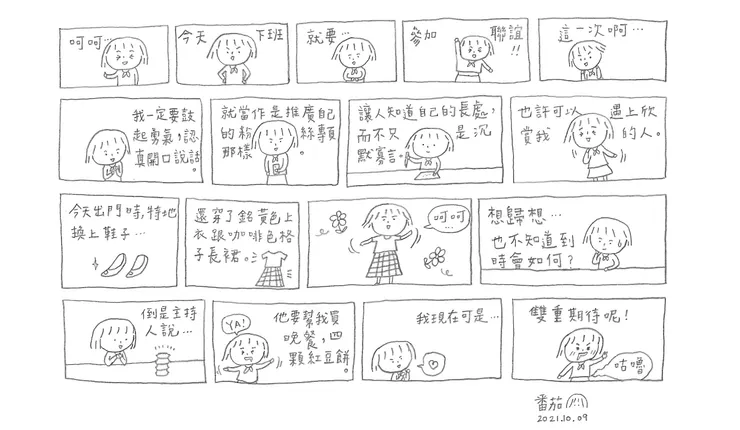 呵呵…
今天 下班
就要…
參加 聯誼!!
這一次啊…
我一定要鼓
起勇氣，認
真開口說話。
就當作是推廣自己
的粉 絲專頁
那樣 。
讓人知道自己的長處，
而不只 是沉
默寡言。
也許可以 遇上欣
賞我 的人。
今天出門時，特地
換上鞋子…
還穿了鉛黃色上
衣跟咖啡色格
子長裙。
呵呵…
想歸想…
也不知道到
時會如何？
倒是主持
人說…
YA!
他要幫我買
晚餐，四
顆紅豆餅。
我現在可是…
雙重期待呢！
咕嚕
番茄
2021.10.09